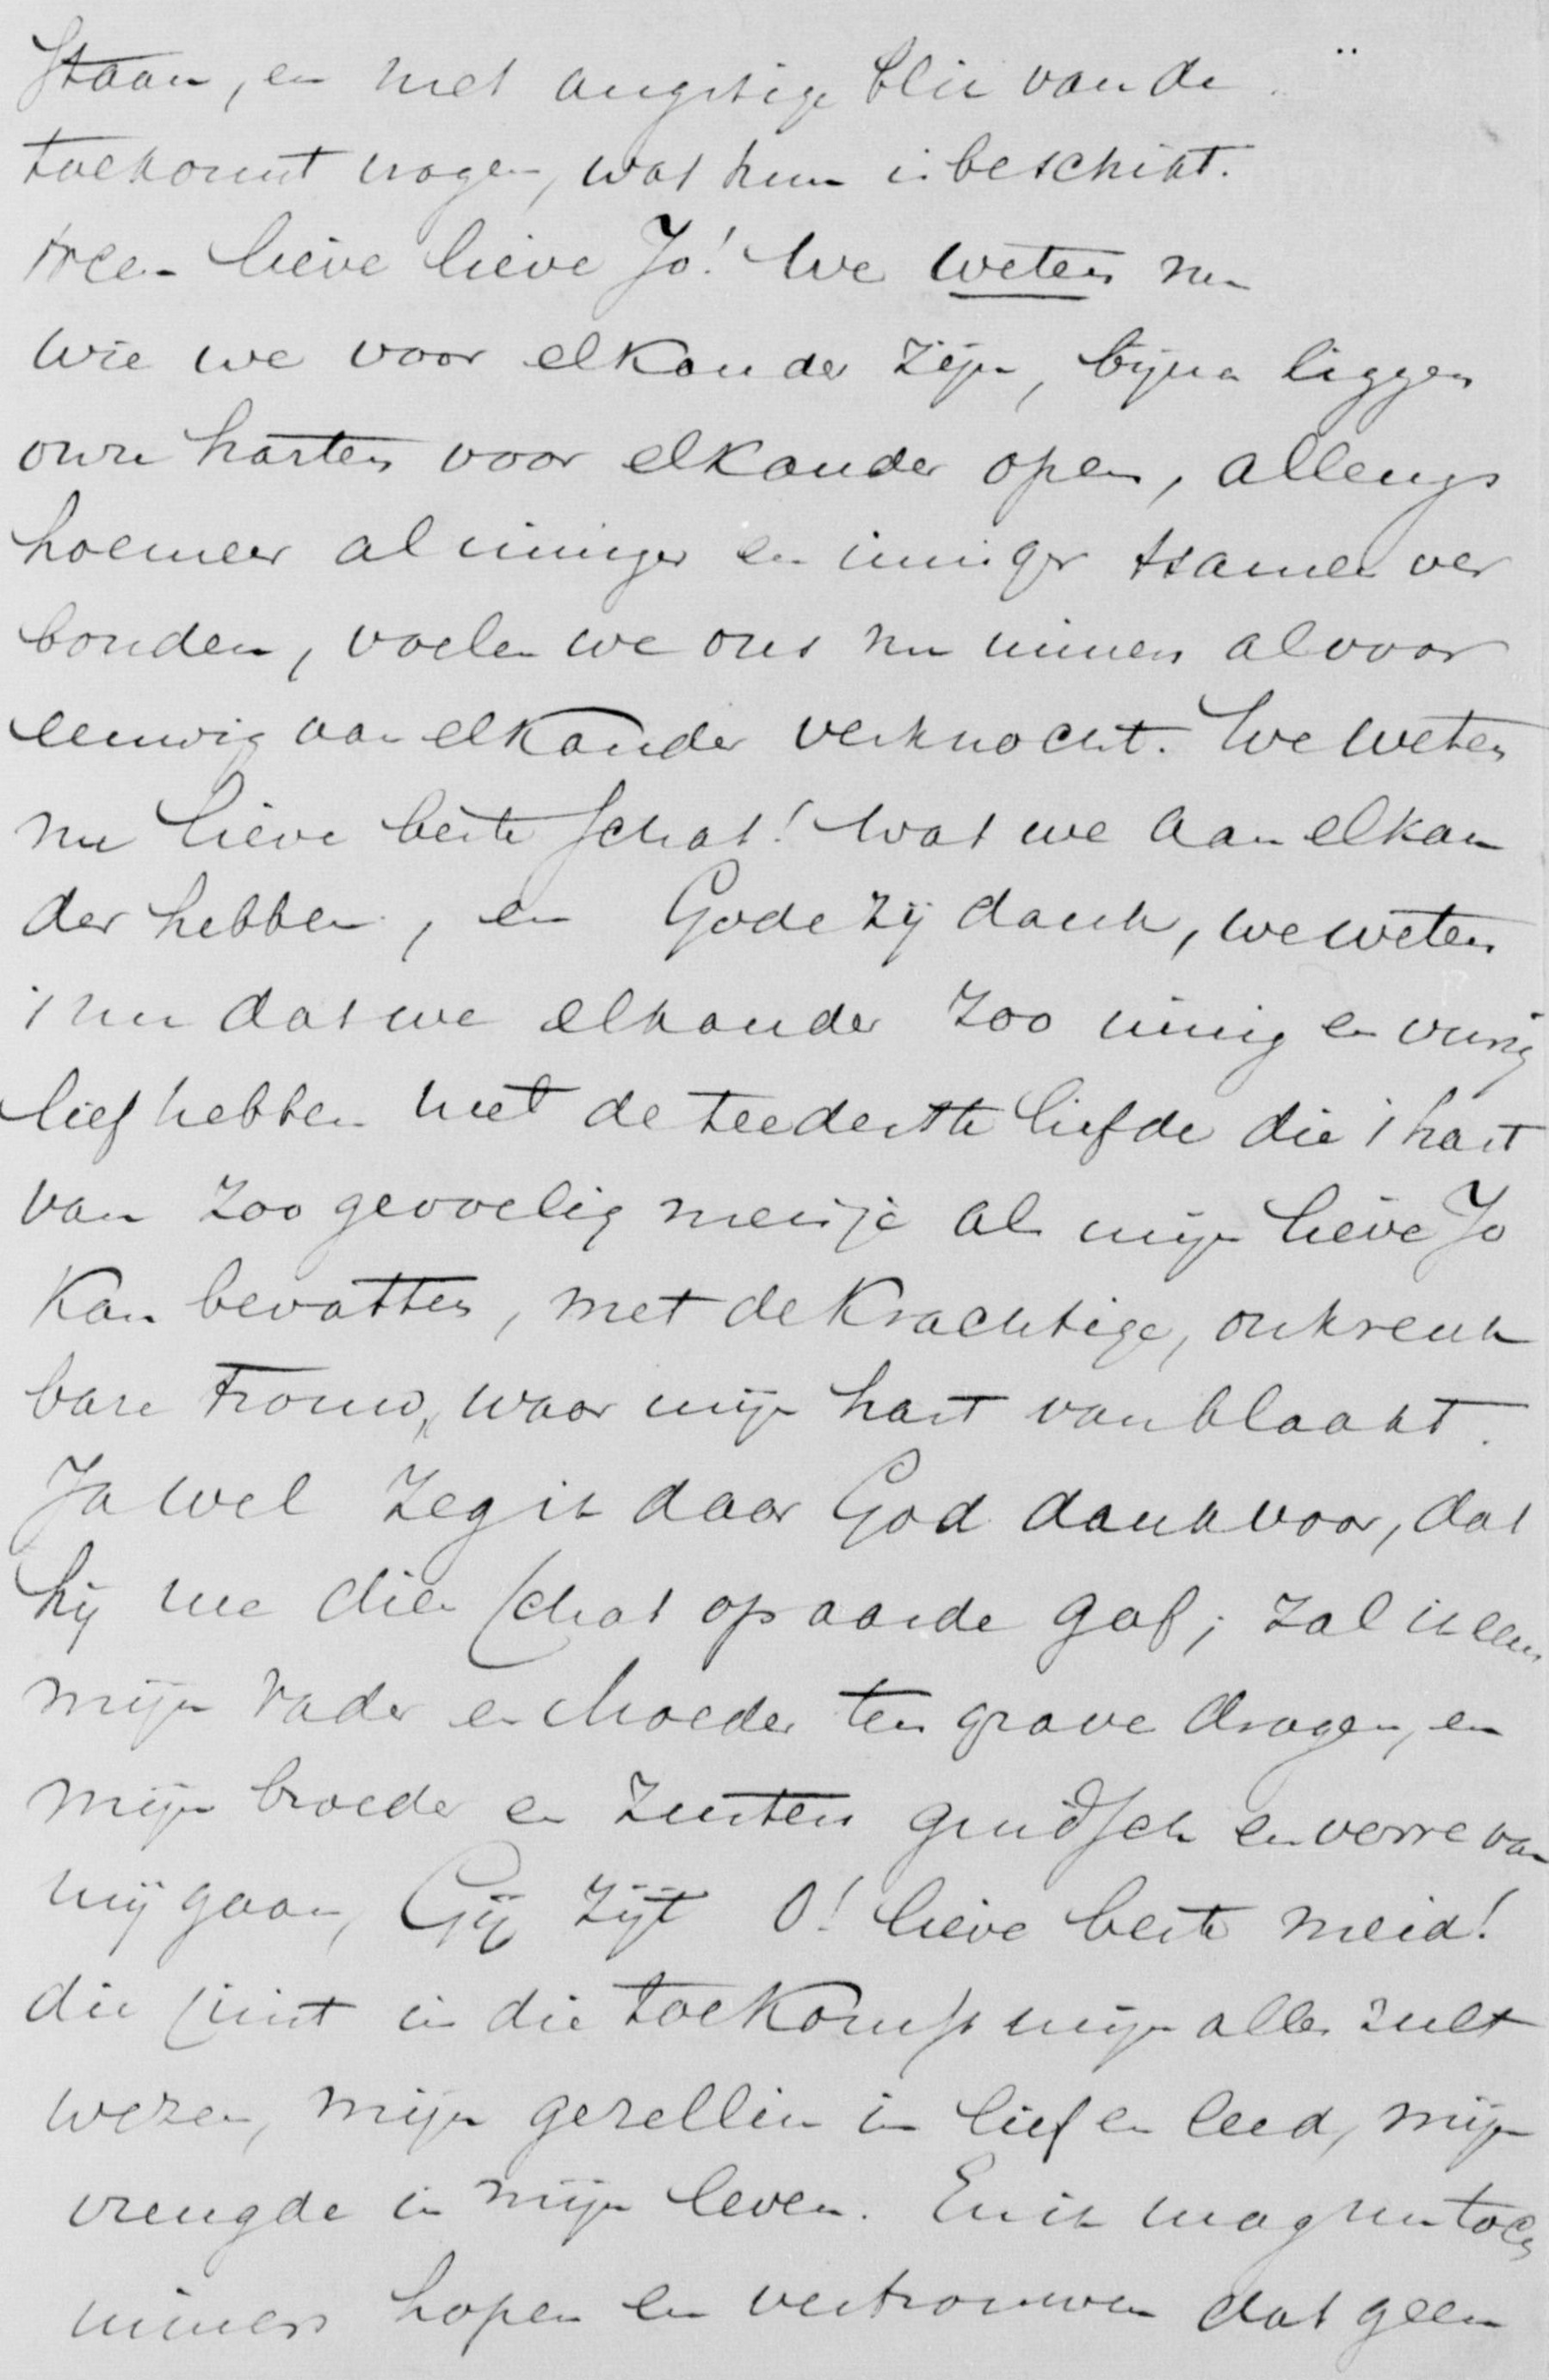 staan, en met angstige blik van de
toekomst vragen, wat hun is beschikt.
Neen lieve lieve Jo! We weten nu
wie we voor elkander zijn, bijna liggen
onze harten voor elkander open, allengs
hoemeer al inniger en inniger tsamen ver
bonden, voelen we ons nu immers al voor
eeuwig aan elkander verknocht. We weten
nu lieve beste schat! wat we aan elkan
der hebben, en Gode zij dank, we weten
't nu dat we elkander zoo innig en vurig
lief hebben met de teederste liefde die 't hart
van zoo gevoelig meisje als mijn lieve Jo
kan bevatten, met de krachtige, onkreuk
bare trouw, waar mijn hart van blaakt.
Ja wel zeg ik daar God dank voor, dat
hij me dien schat op aarde gaf; zal ik eens
mijn Vader en Moeder ten grave dragen, en
mijn broeder en zusters ginds en verre van
mij gaan, Gij zijt O! lieve beste meid!
die juist in die toekomst mijn alles zult
wezen, mijn gezellin in lief en leed, mijn
vreugde in mijn leven. En ik mag nu toch
immers hopen en vertrouwen dat geen